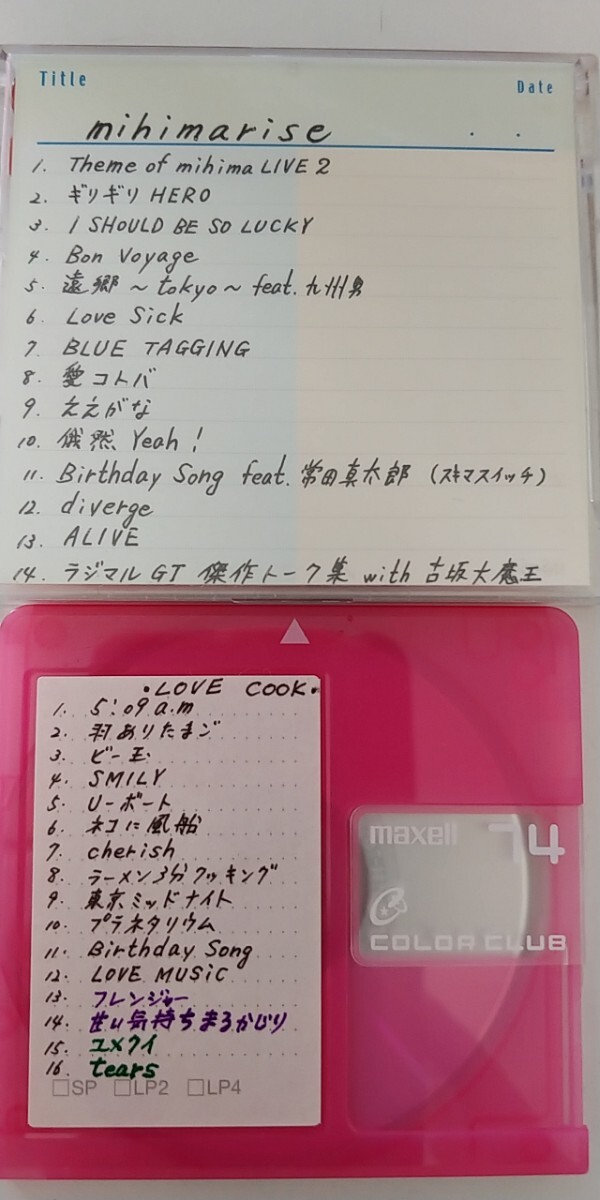 Title
Date
mihimarise
1. Theme of mihima LIVE 2
2. ギリギリ HERO
3. I SHOULD BE SO LUCKY
4. Bon Voyage
5. 遠郷 ~ tokyo ~ feat. 九州男
6. Love Sick
7. BLUE TAGGING
8. 愛コトバ
9. ええがな
10. 俄然 Yeah!
11. Birthday Song feat. 常田真太郎 (スキマスイッチ)
12. diverge
13. ALIVE
14. ラジマル GT 傑作トーク集 with 古坂大魔王
・LOVE COOK・
1. 5:09 a.m
2. 羽ありたまご
3. ビー玉
4. SMILY
5. Uーボート
6. ネコに風船
7. cherish
8. ラーメン3分クッキング
9. 東京ミッドナイト
10. プラネタリウム
11. Birthday Song
12. LOVE MUSiC
13. フレンジャー
14. 甘い気持ちまるかじり
15. ユメクイ
16. tears
□SP □LP2 □LP4
maxell 74
COLOR CLUB